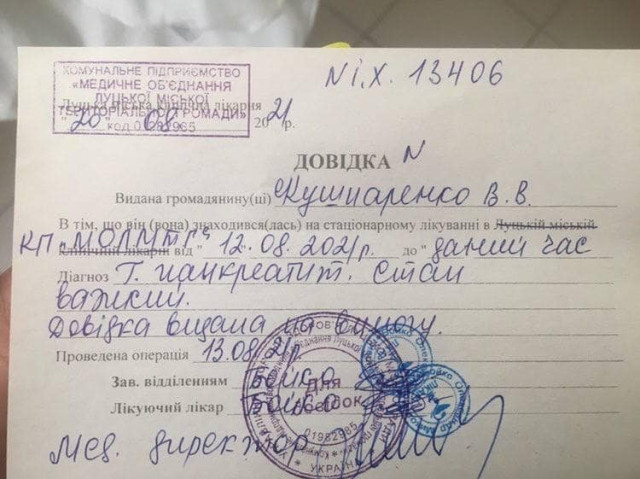 КОМУНАЛЬНЕ ПІДПРИЄМСТВО
«МЕДИЧНЕ ОБ'ЄДНАННЯ
ЛУЦЬКОЇ МІСЬКОЇ
ТЕРИТОРІАЛЬНОЇ ГРОМАДИ»
код 01982985
Луцька міська клінічна лікарня
"20" 08 2021 р.
N і.х. 13406
ДОВІДКА N
Видана громадянину(ці) Кушнаренко В.В.
В тім, що він (вона) знаходився(лась) на стаціонарному лікуванні в Луцькій міській
клінічній лікарні КП "МОЛМТГ" від " 12.08.2021р. до " даний час
Діагноз Г. панкреатит. Стан
важкий.
Довідка видана на вимогу.
Проведена операція 13.08.21р
Зав. відділенням Бойко
Лікуючий лікар Бойко
Мед. директор
Для довідок
01982985
УКРАЇНА